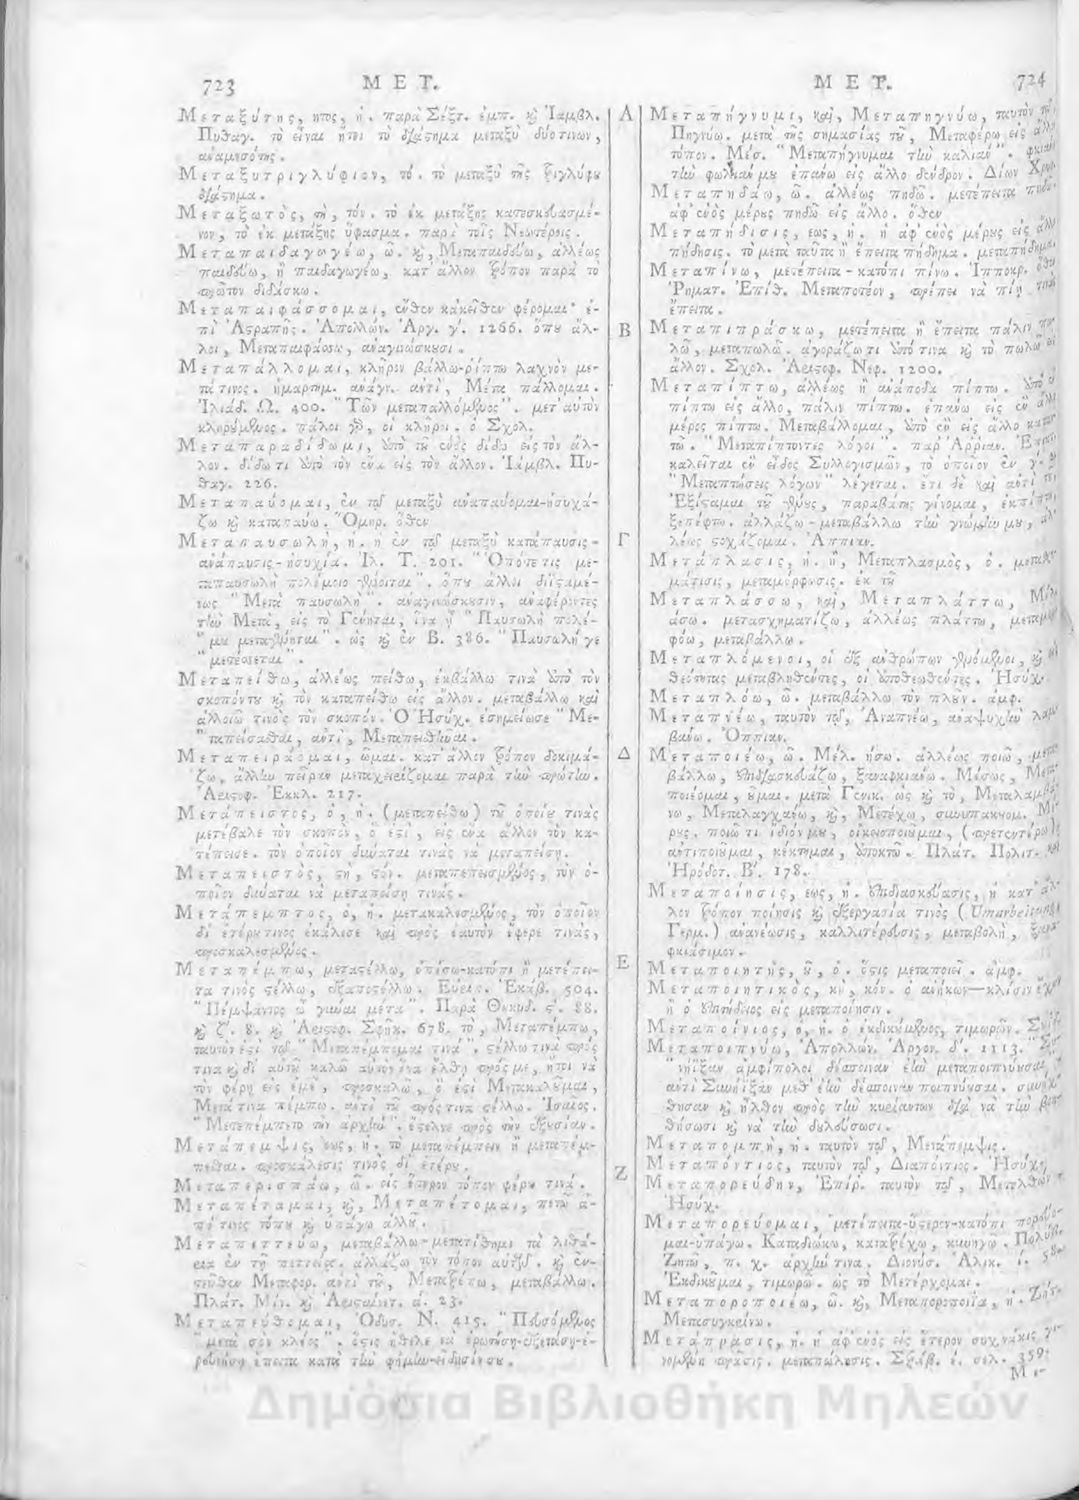 723 ΜΕΤ.
Μεταξύτης, ητος, ἡ. παρὰ Σέξτ. ἐμπ. καὶ Ἰαμβλ.
Πυθαγ. τὸ εἶναι ἤτοι τὸ διάστημα μεταξὺ δύο τινων,
ἀναμεσότης.
Μεταξυτριγλύφιον, τό. τὸ μεταξὺ τῆς τριγλύφου
διάστημα.
Μεταξωτὸς, τὴ, τόν. τὸ ἐκ μετάξης κατεσκευασμέ-
νον, τὸ ἐκ μετάξης ὕφασμα. παρὰ τοῖς Νεωτέροις.
Μεταπαιδαγωγέω, ῶ. καὶ, Μεταπαιδεύω, ἀλλέως
παιδεύω, ἢ παιδαγωγέω, κατ' ἄλλον τρόπον παρὰ τὸ
πρῶτον διδάσκω.
Μεταπαιφάσσομαι, ἔνθεν κἀκεῖθεν φέρομαι· ἐ-
πὶ Ἀστραπῆς. Ἀπολλών. Ἀργ. γ'. 1266. ὅπου ἄλ-
λοι, Μεταπαιφάσσειν, ἀναγινώσκουσι.
Μεταπάλλομαι, κλῆρον βάλλω-ῥίπτω λαχνὸν με-
τά τινος. ἡμαρτημ. ἀνάγν. ἀντὶ, Μέτα πάλλομαι.
Ἰλιάδ. Ω. 400. "Τῶν μεταπαλλόμενος". μετ' αὐτῶν
κληρούμενος. πάλοι γὰρ, οἱ κλῆροι. ὁ Σχολ.
Μεταπαραδίδωμι, ἀπὸ τοῦ ἑνὸς δίδω εἰς τὸν ἄλ-
λον. δίδω τι ἀπὸ τὸν ἕνα εἰς τὸν ἄλλον. Ἰάμβλ. Πυ-
θαγ. 226.
Μεταπαύομαι, ἐν τῷ μεταξὺ ἀναπαύομαι-ἡσυχά-
ζω καὶ καταπαύω. Ὅμηρ. ὅθεν
Μεταπαυσωλὴ, ἡ. ἡ ἐν τῷ μεταξὺ κατάπαυσις-
ἀνάπαυσις-ἡσυχία. Ἰλ. Τ. 201. "Ὁπότε τις με-
ταπαυσωλὴ πολέμοιο γένηται". ὅπου ἄλλοι διϊσταμέ-
νως "Μετὰ παυσωλὴ". ἀναγινώσκουσιν, ἀναφέροντες
τὴν Μετὰ, εἰς τὸ Γένηται, ἵνα ᾖ "Παυσωλὴ πολέ-
"μου μεταγένηται". ὡς καὶ ἐν Β. 386. "Παυσωλή γε
"μετέσσεται".
Μεταπείθω, ἀλλέως πείθω, ἐκβάλλω τινὰ ἀπὸ τὸν
σκοπόν του καὶ τὸν καταπείθω εἰς ἄλλον. μεταβάλλω καὶ
ἀλλοιῶ τινος τὸν σκοπόν. Ὁ Ἡσύχ. ἐσημείωσε "Με-
"ταπείσασθαι, ἀντὶ, Μεταπεισθῆναι.
Μεταπειράομαι, ῶμαι. κατ' ἄλλον τρόπον δοκιμά-
ζω, ἄλλην πεῖραν μεταχειρίζομαι παρὰ τὴν πρώτην.
Ἀριστοφ. Ἐκκλ. 217.
Μετάπειστος, ὁ, ἡ. (μεταπείθω) τοῦ ὁποίου τινὰς
μετέβαλε τὸν σκοπὸν, ὅ ἐστι, εἰς ἕνα ἄλλον τὸν κα-
τέπεισε. τὸν ὁποῖον δύναται τινὰς νὰ μεταπείσῃ.
Μεταπειστὸς, στὴ, στόν. μεταπεπεισμένος, τὸν ὁ-
ποῖον δύναται νὰ μεταπείσῃ τινάς.
Μετάπεμπτος, ὁ, ἡ. μετακαλεσμένος, τὸν ὁποῖον
δι' ἑτέρου τινος ἐκάλεσε καὶ πρὸς ἑαυτὸν ἔφερε τινὰς,
προσκαλεσμένος.
Μεταπέμπω, μεταστέλλω, ὀπίσω-κατόπι ἢ μετέπει-
τα τινὸς στέλλω, ἐξαποστέλλω. Εὐριπ. Ἑκάβ. 504.
"Πέμψαντος ὦ γύναι μέτα". Παρὰ Θουκυδ. ς'. 88.
καὶ ζ'. 8. καὶ Ἀριστοφ. Σφηκ. 678. τὸ, Μεταπέμπω,
ταὐτόν ἐστι τῷ "Μεταπέμπομαι τινὰ". στέλλω τινα πρός
τινα καὶ δι' αὐτοῦ καλῶ αὐτὸν ἵνα ἔλθῃ πρός με, ἤτοι νὰ
τὸν φέρῃ εἰς ἐμὲ, προσκαλῶ, ὅ ἐστι Μετακαλοῦμαι,
Μετά τινα πέμπω. ἀντὶ τοῦ πρός τινα στέλλω. Ἰσαῖος.
"Μετεπέμπετο τὴν ἀρχὴν". ἔστελνε πρὸς τὴν ἐξουσίαν.
Μετάπεμψις, έως, ἡ. τὸ μεταπέμπειν ἢ μεταπέμ-
πεσθαι. προσκάλεσις τινὸς δι' ἑτέρου.
Μεταπερισπάω, ῶ. εἰς ἕτερον τόπον φέρω τινά.
Μεταπέταμαι, καὶ, Μεταπέτομαι, πετῶ ἀ-
πό τινος τόπου καὶ ὑπάγω ἀλλοῦ.
Μεταπεττεύω, μεταβάλλω-μετατίθημι τὰ λιθά-
ρια ἐν τῇ πεττείᾳ. ἀλλάζω τὸν τόπον αὐτῶν. καὶ ἐν-
τεῦθεν Μεταφορ. ἀντὶ τοῦ, Μετατρέπω, μεταβάλλω.
Πλάτ. Μίν. καὶ Ἀρισταίνετ. ά. 23.
Μεταπεύθομαι, Ὀδυσ. Ν. 415. "Πευσόμενος
"μετὰ σὸν κλέος". ὅστις ἤθελε νὰ ἐρωτήσῃ-ἐξετάσῃ-ἐ-
ρευνήσῃ ἔπειτα κατὰ τὴν φήμην-εἴδησίν σου.
Α
Β
Γ
Δ
Ε
Ζ
ΜΕΤ. 724
Μεταπήγνυμι, καὶ, Μεταπηγνύω, ταὐτὸν τῷ,
Πηγνύω. μετὰ τῆς σημασίας τοῦ, Μεταφέρω εἰς ἄλλο
τόπον. Μέσ. "Μεταπήγνυμαι τὴν καλιάν".
τὴν φωλεάν μου ἐπάνω εἰς ἄλλο δένδρον. Δίων Χρυσ.
Μεταπηδάω, ῶ. ἀλλέως πηδῶ. μετέπειτα πηδῶ
ἀφ' ἑνὸς μέρους πηδῶ εἰς ἄλλο. ὅθεν
Μεταπήδισις, εως, ἡ. ἡ ἀφ' ἑνὸς μέρους εἰς ἄλλο
πήδησις. τὸ μετὰ ταῦτα ἢ ἔπειτα πήδημα. μεταπήδημα
Μεταπίνω, μετέπειτα-κατόπι πίνω. Ἱπποκρ. ὅθεν
Ῥηματ. Ἐπίθ. Μεταποτέον, πρέπει νὰ πίῃ τινὰς
ἔπειτα.
Μεταπιπράσκω, μετέπειτα ἢ ἔπειτα πάλιν πω-
λῶ, μεταπωλῶ. ἀγοράζω τι ἀπό τινα καὶ τὸ πωλῶ εἰς
ἄλλον. Σχολ. Ἀριστοφ. Νεφ. 1200.
Μεταπίπτω, ἀλλέως ἢ ἀνάποδα πίπτω.
πίπτω εἰς ἄλλο, πάλιν πίπτω. ἐπάνω εἰς ἓν ἄλλο
μέρος πίπτω. Μεταβάλλομαι, ἀπὸ ἓν εἰς ἄλλο καταν-
τῶ. "Μεταπίπτοντες λόγοι". παρ' Ἀρριαν.
καλεῖται ἓν εἶδος Συλλογισμῶν, τὸ ὁποῖον ἐν
"Μεταπτώσεις λόγων" λέγεται. ἔτι δὲ καὶ ἀντὶ τοῦ
Ἐξίσταμαι τοῦ γένους, παραβάτης γίνομαι, ἐκπίπτω,
ξεπέφτω. ἀλλάζω-μεταβάλλω τὴν γνώμην μου, ἀλ-
λέως στοχάζομαι. Ἀππιαν.
Μετάπλασις, ἡ. ἢ, Μεταπλασμὸς, ὁ. μετασχη-
μάτισις, μεταμόρφωσις. ἐκ τοῦ
Μεταπλάσσω, καὶ, Μεταπλάττω, Μέλ.
άσω. μετασχηματίζω, ἀλλέως πλάττω, μεταμορ-
φόω, μεταβάλλω.
Μεταπλόμενοι, οἱ ἐξ ἀνθρώπων γενόμενοι, καὶ εἰς
θεότητας μεταβληθέντες, οἱ ἀποθεωθέντες. Ἡσύχ.
Μεταπλόω, ῶ. μεταβάλλω τὸν πλοῦν. ἀμφ.
Μεταπνέω, ταὐτὸν τῷ, Ἀναπνέω, ἀναψυχὴν λαμ-
βάνω. Ὀππιαν.
Μεταποιέω, ῶ. Μέλ. ήσω. ἀλλέως ποιῶ, μετα-
βάλλω, ἐπιδιασκευάζω, ξαναφκιάνω. Μέσως, Μετα-
ποιέομαι, οῦμαι. μετὰ Γενικ. ὡς καὶ τὸ, Μεταλαμβά-
νω, Μεταλαγχάνω, καὶ, Μετέχω, συμυπακουομ. Μέ-
ρος. ποιῶ τι ἴδιόν μου, οἰκειοποιοῦμαι, (προτεντέρω)
ἀντιποιοῦμαι, κέκτημαι, ἀποκτῶ. Πλάτ. Πολιτ. καὶ
Ἡρόδοτ. Β'. 178.
Μεταποίησις, έως, ἡ. ἐπιδιασκεύασις, ἡ κατ' ἄλ-
λον τρόπον ποίησις καὶ ἐξεργασία τινὸς (Umarbeitung
Γερμ.) ἀνανέωσις, καλλιτέρευσις, μεταβολὴ, ξανα-
φκιάσιμον.
Μεταποιητὴς, οῦ, ὁ. ὅστις μεταποιεῖ. ἀμφ.
Μεταποιητικὸς, κὴ, κόν. ὁ ἀνήκων—κλίσιν ἔχων
ἢ ὁ ἐπιτήδειος εἰς μεταποίησιν.
Μεταποίνιος, ὁ, ἡ. ὁ ἐκδικούμενος, τιμωρῶν.
Μεταποιπνύω, Ἀπολλών. Ἀργον. δ'. 1113.
"νήϊξαν ἀμφίπολοι δέσποιναν ἑὴν μεταποιπνύουσαι,
ἀντὶ Συνήϊξαν μεθ' ἑὴν δέσποιναν ποιπνύουσαι.
θησαν καὶ ἦλθον πρὸς τὴν κυρίαν των διὰ νὰ τὴν βοη-
θήσωσι καὶ νὰ τὴν δουλεύσωσι.
Μεταπομπὴ, ἡ. ταὐτὸν τῷ, Μετάπεμψις.
Μεταπόντιος, ταὐτὸν τῷ, Διαπόντιος. Ἡσύχ.
Μεταπορεύδην, Ἐπίρ. ταὐτὸν τῷ, Μετελθὼν
Ἡσύχ.
Μεταπορεύομαι, μετέπειτα-ὕστερον-κατόπι πορεύο-
μαι-ὑπάγω. Καταδιώκω, κατατρέχω, κυνηγῶ. Πολυβ.
Ζητῶ, π. χ. ἀρχήν τινα. Διονύσ. Ἁλικ. ί. 58.
Ἐκδικοῦμαι, τιμωρῶ. ὡς τὸ Μετέρχομαι.
Μεταποροποιέω, ῶ. καὶ, Μεταποροποιΐα, ἡ.
Μετασυγκρίνω.
Μετάπρασις, ἡ. ἡ ἀφ' ἑνὸς εἰς ἕτερον συχνάκις γι-
νομένη πρᾶσις. μεταπώλησις. Στράβ. έ. σελ. 359.
Με-
Δημόσια Βιβλιοθήκη Μηλεών